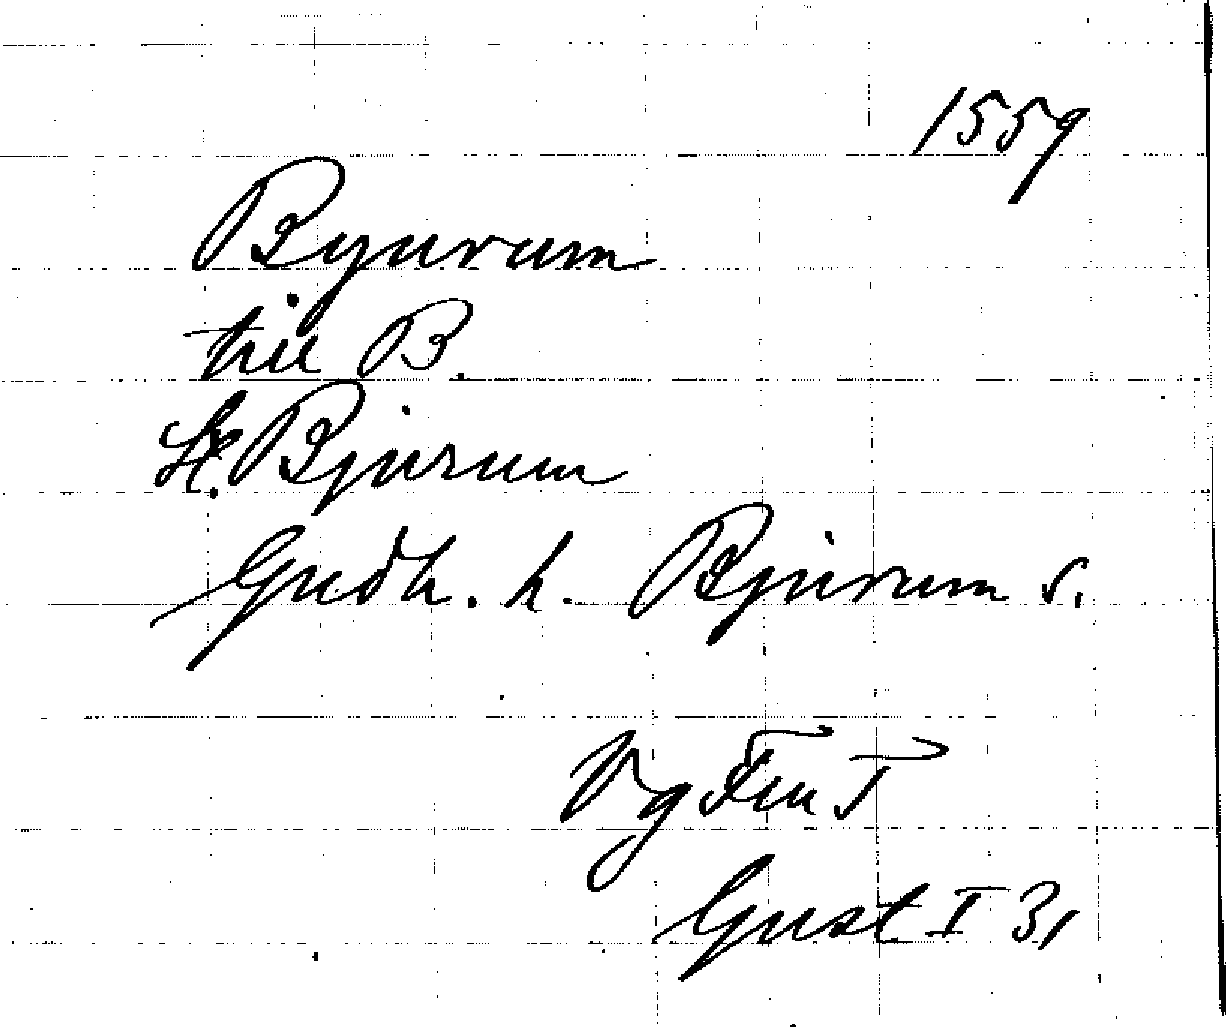 1559
Byurum
till B.
St. Bjurum
Gudh. h. Bjurum s.
Vg Fru T
Gust I 31